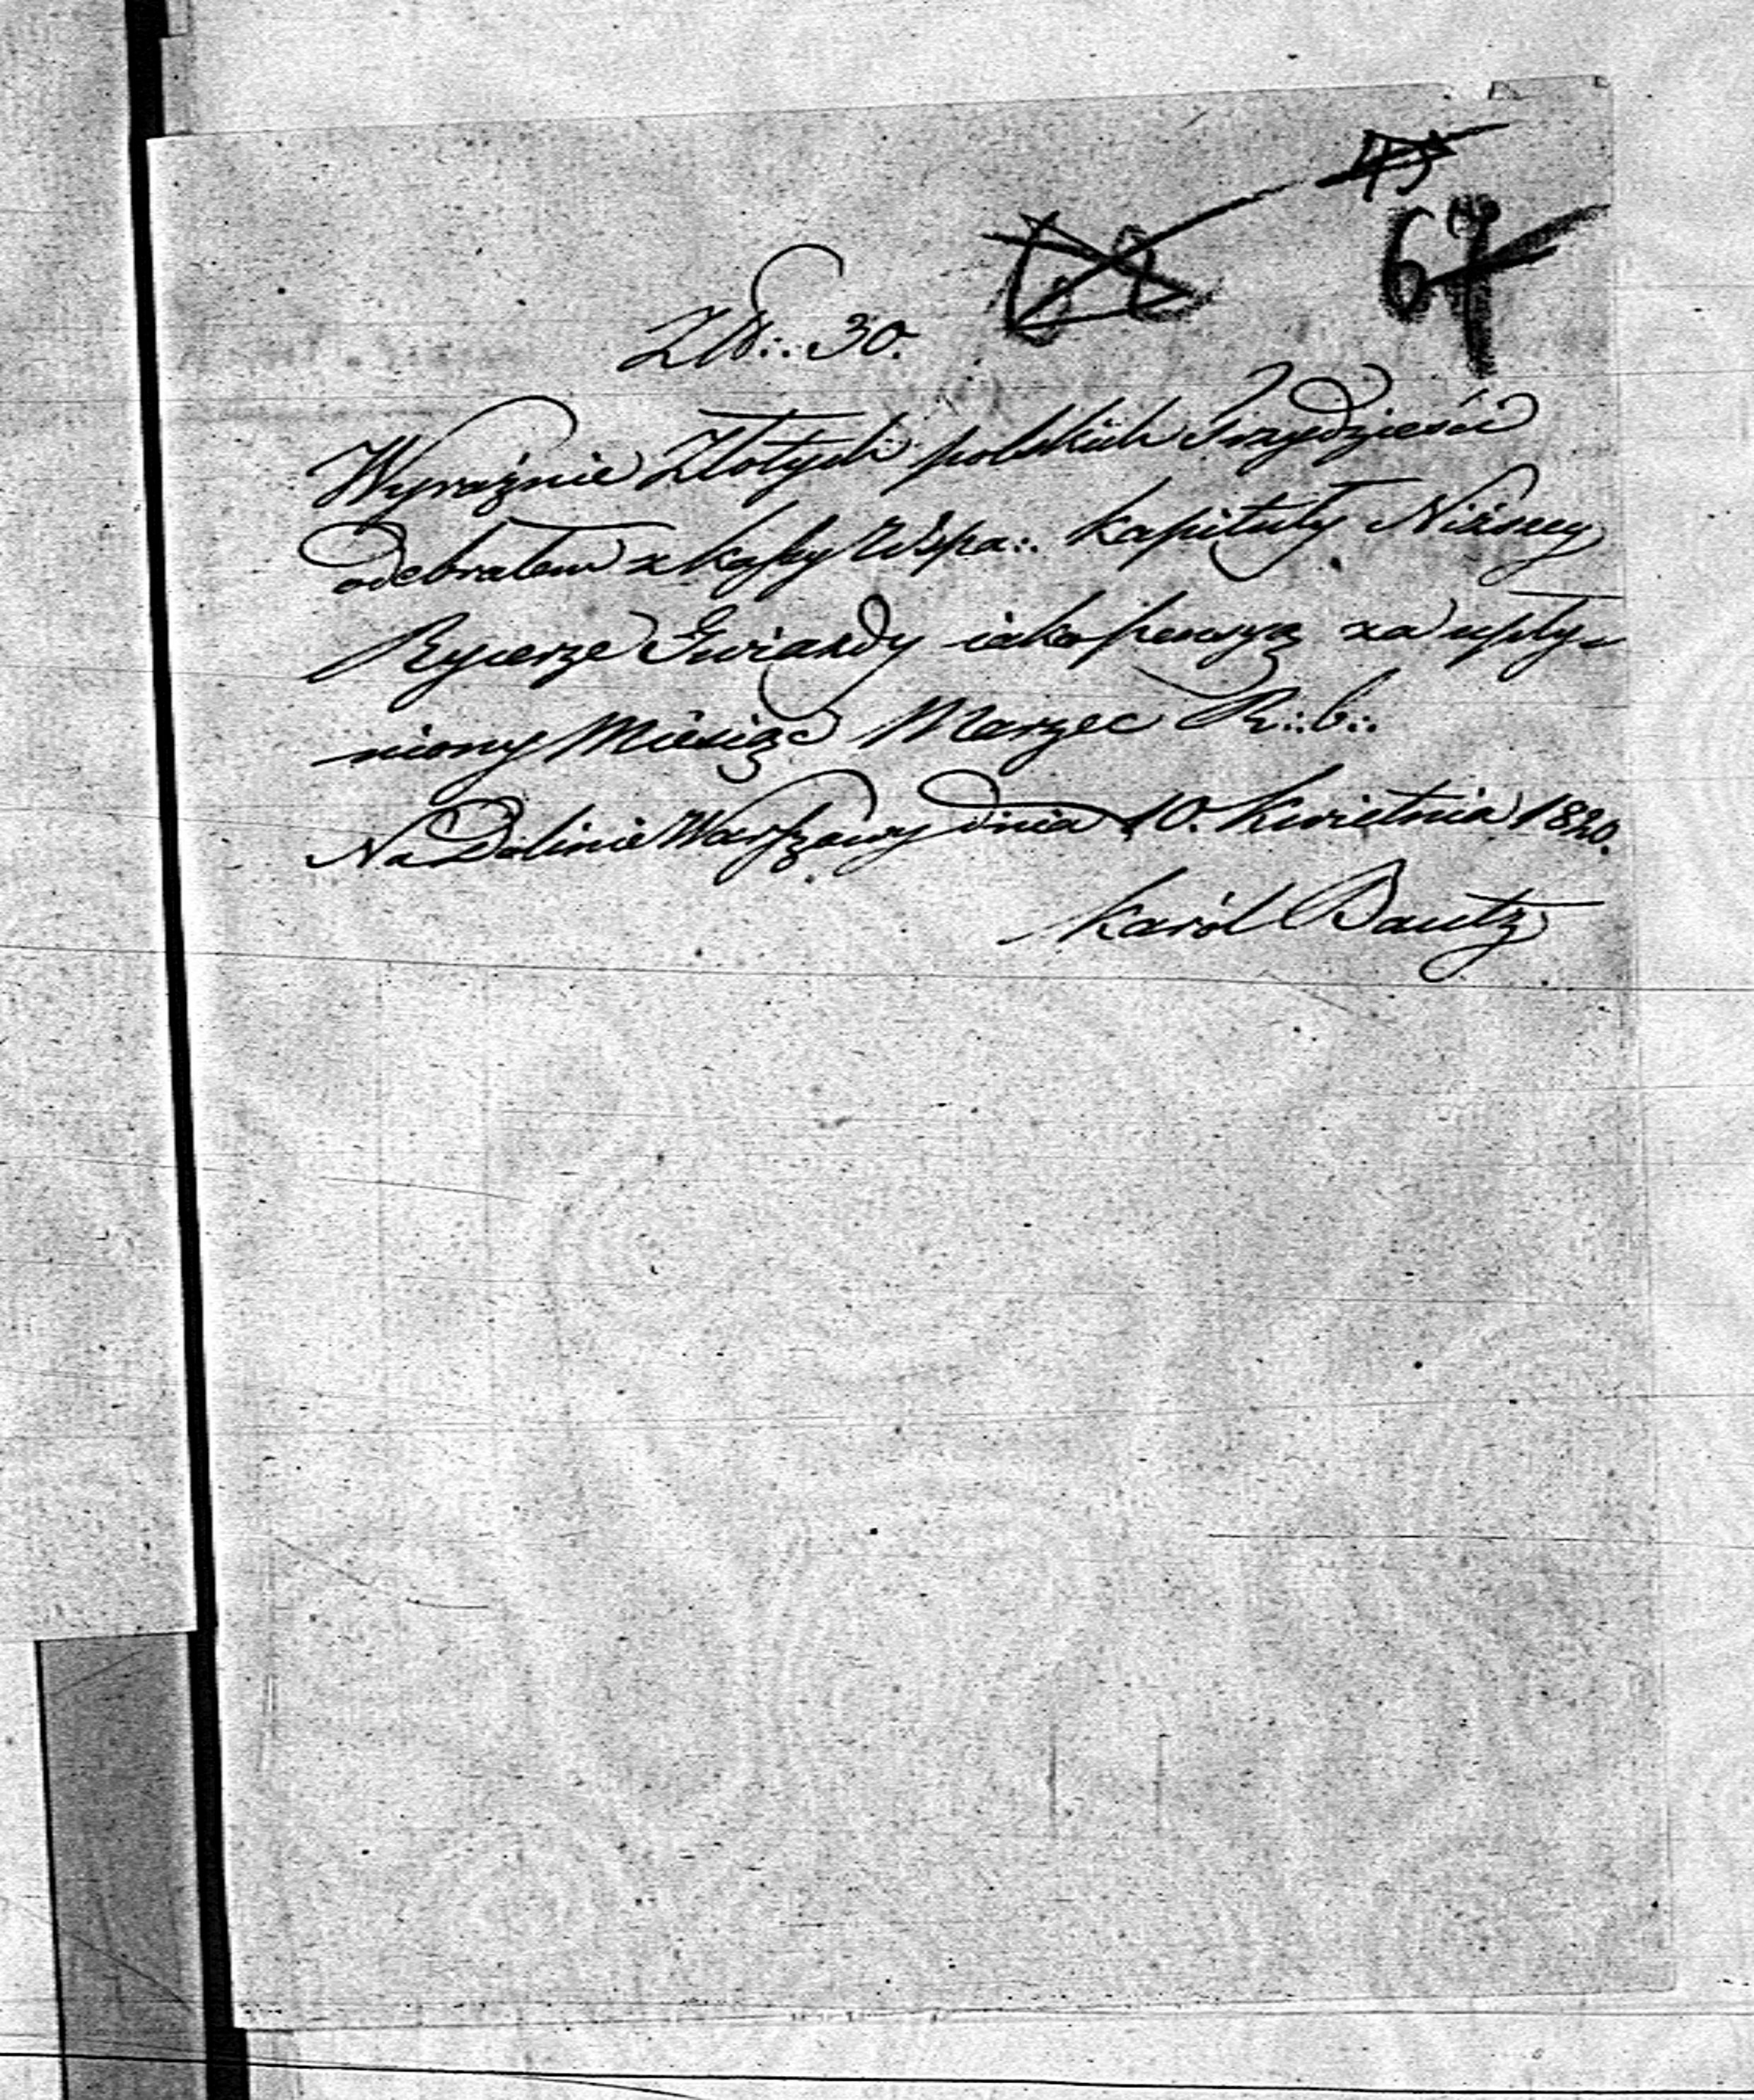 67
Zł∴ 30.
Wyraźnie Złotych polskich Trzydzieści
odebrałem z kassy Wspa∴ Kapituły Niższey
Rycerze Gwiazdy iako pensyą za upły-
niony Miesiąc Marzec R∴ b∴
Na Dolinie Warszawy dnia 10. Kwietnia 1820.
Karól Bautz